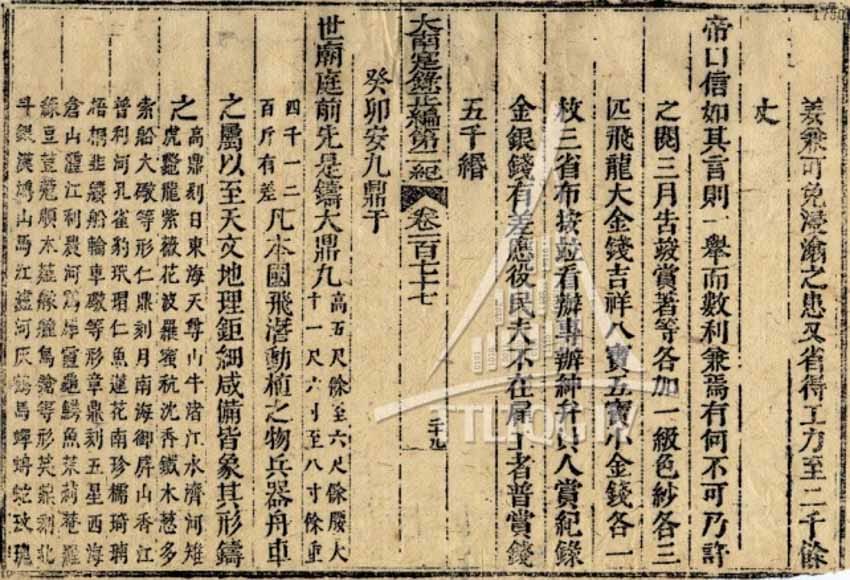 義兼可免浸溢之患又省得工力至二千餘
丈
帝曰信如其言則一舉而數利兼焉有何不可乃許
之閱三月告竣賞著等各加一級色紗各三
匹飛龍大金錢吉祥八寶五寶小金錢各一
枚三省布按並看辦專辦紳弁員人賞紀錄
金銀錢有差應役民夫不在雇工者普賞錢
五千緡
大南寔錄正編第二紀 卷一百七十七 二十九
癸卯安九鼎于
世廟庭前先是鑄大鼎九高五尺餘至六尺餘腰大
十一尺六寸至八寸餘重
四千一二
百斤有差凡本國飛潛動植之物兵器舟車
之屬以至天文地理鉅細咸備皆象其形鑄
之高鼎刻日東海天尊山牛渚江永濟河雉
虎鱉龍紫薇花波羅蜜秔沈香鐵木蔥多
索船大礮等形仁鼎刻月南海御屏山香江
普利河孔雀豹玳瑁仁魚蓮花南珍糯琦㻴
梧桐韭樓船輪車礮等形章鼎刻五星西海
倉山靈江利農河龜鱷魚茉莉菴羅
綠豆荳蔻順木薤艨艟鳥鎗等形英鼎刻北
斗銀漢鴻山馬江瀘河灰鶴馬蟬蟒蛇玫瑰
TTLTQG IV